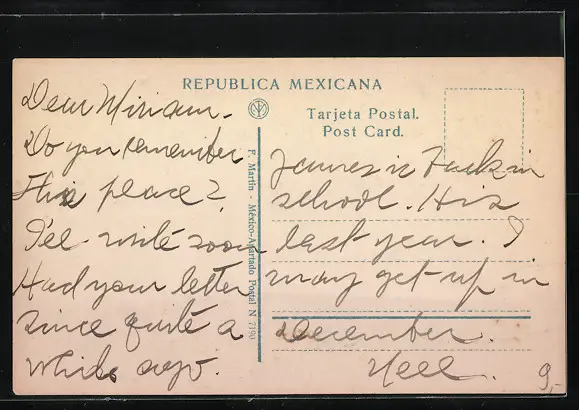 REPUBLICA MEXICANA
Tarjeta Postal.
Post Card.
F. Martin - México-Apartado Postal N 7190
Dear Miriam -
Do you remember
this place?
I'll write soon
Had your letter
since quite a
while ago.
James is back in
school. His
last year. I
may get up in
December.
9,-